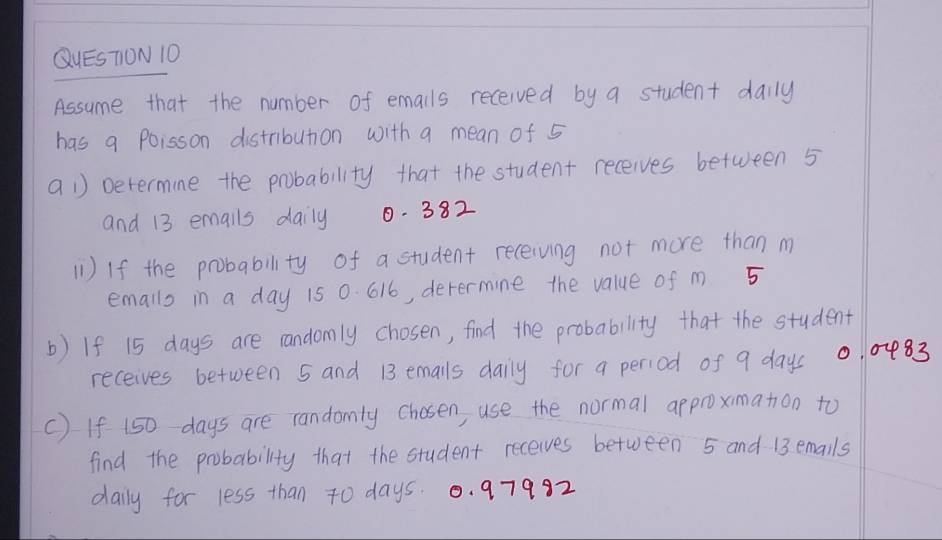 QUESTION 10
Assume that the number of emails received by a student daily
has a Poisson distribution with a mean of 5
a i) Determine the probability that the student receives between 5
and 13 emails daily 0.382
ii) If the probability of a student receiving not more than m
emails in a day is 0.616, determine the value of m 5
b) If 15 days are randomly chosen, find the probability that the student
receives between 5 and 13 emails daily for a period of 9 days 0.0483
c) If 150 days are randomly chosen, use the normal approximation to
find the probability that the student receives between 5 and 13 emails
daily for less than 70 days. 0.97982